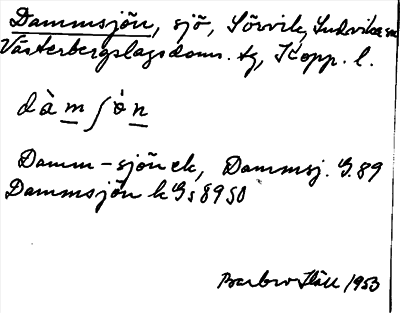 Dammsjön, sjö, Sörvik, Ludvika sn
Västerbergslagsdoms. tg, Kopp. l.
dàmʃȯn
Damm-sjön ek, Dammsj. G. 89
Dammsjön k Gs 89 SO
Barbro Häll 1953